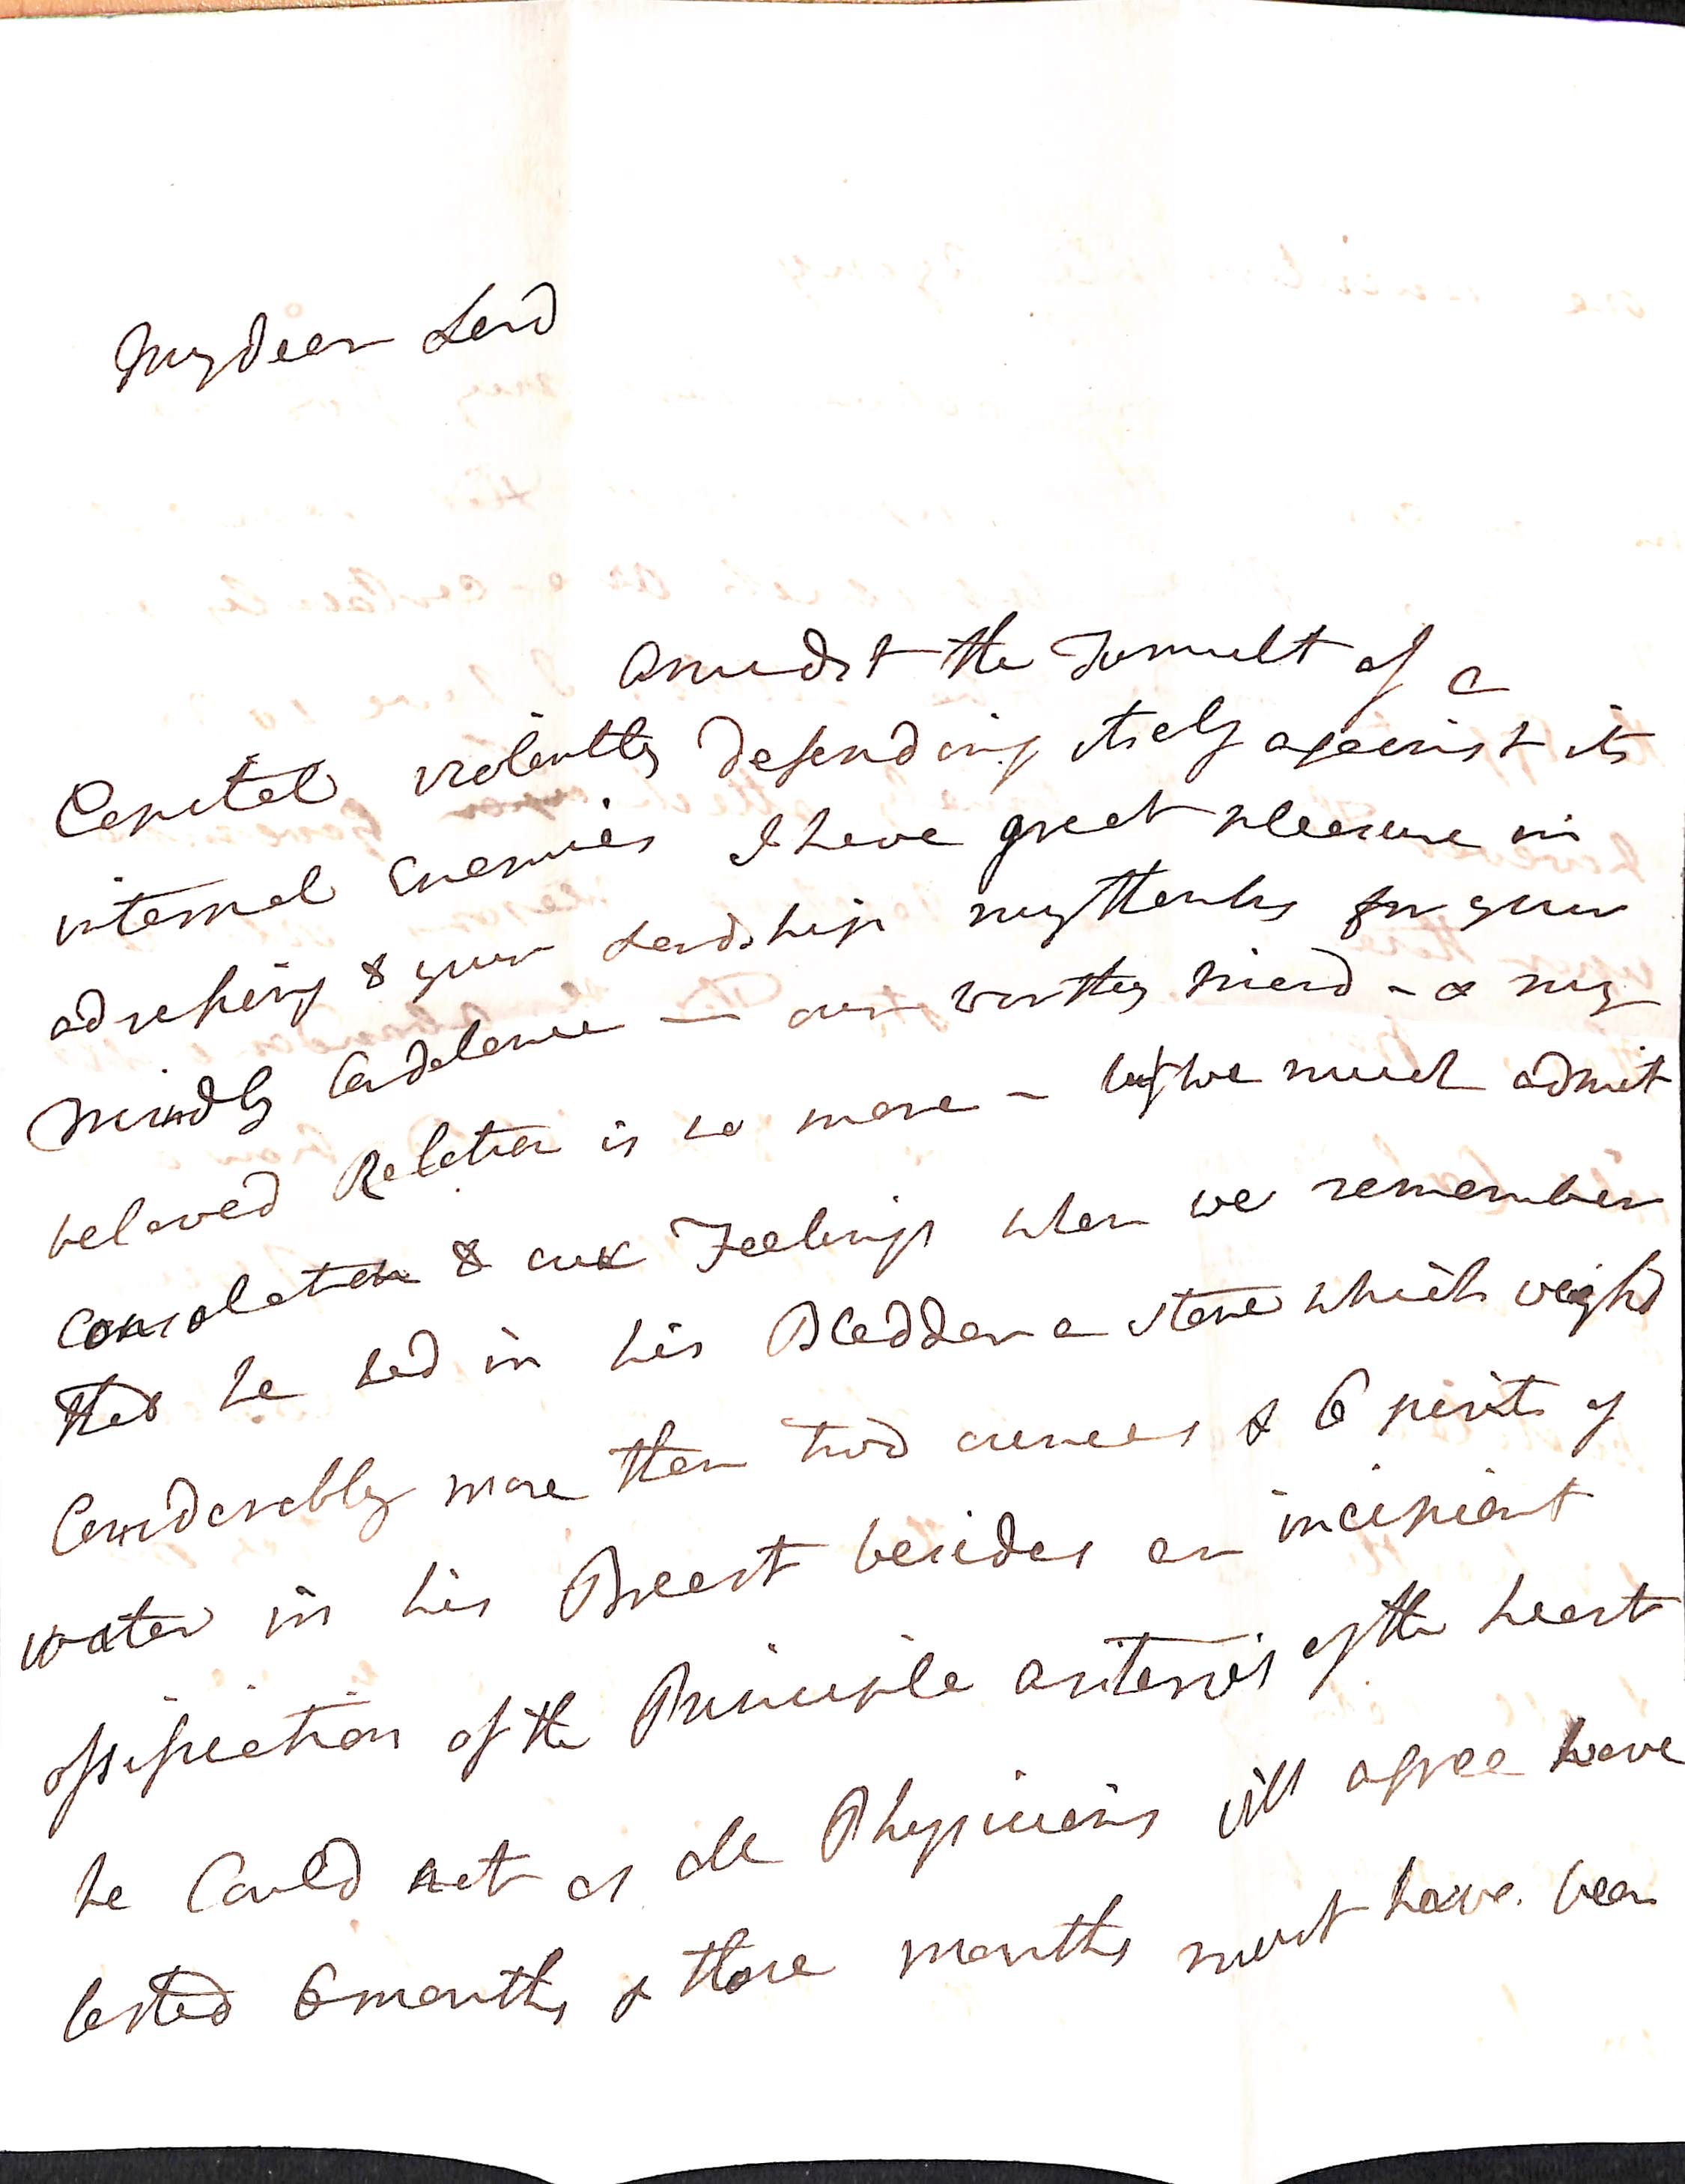 My dear Lord
amidst the Tumult of a
Capital violently defending itself against its
internal Enemies I have great pleasure in
adressing to your Lordship my thanks for your
friendly Condolence — our worthy friend - & my
beloved Relation is no more - but we must admit
Consolation to our Feelings when we remember
that he had in his Bladder a stone which weighd
Considerably more than two ounces & 6 pints of
water in his Breast besides an incipient
ossification of the Principle arteries of the heart
he Could not as all Physicians will agree have
lasted 6 months & those months must have been